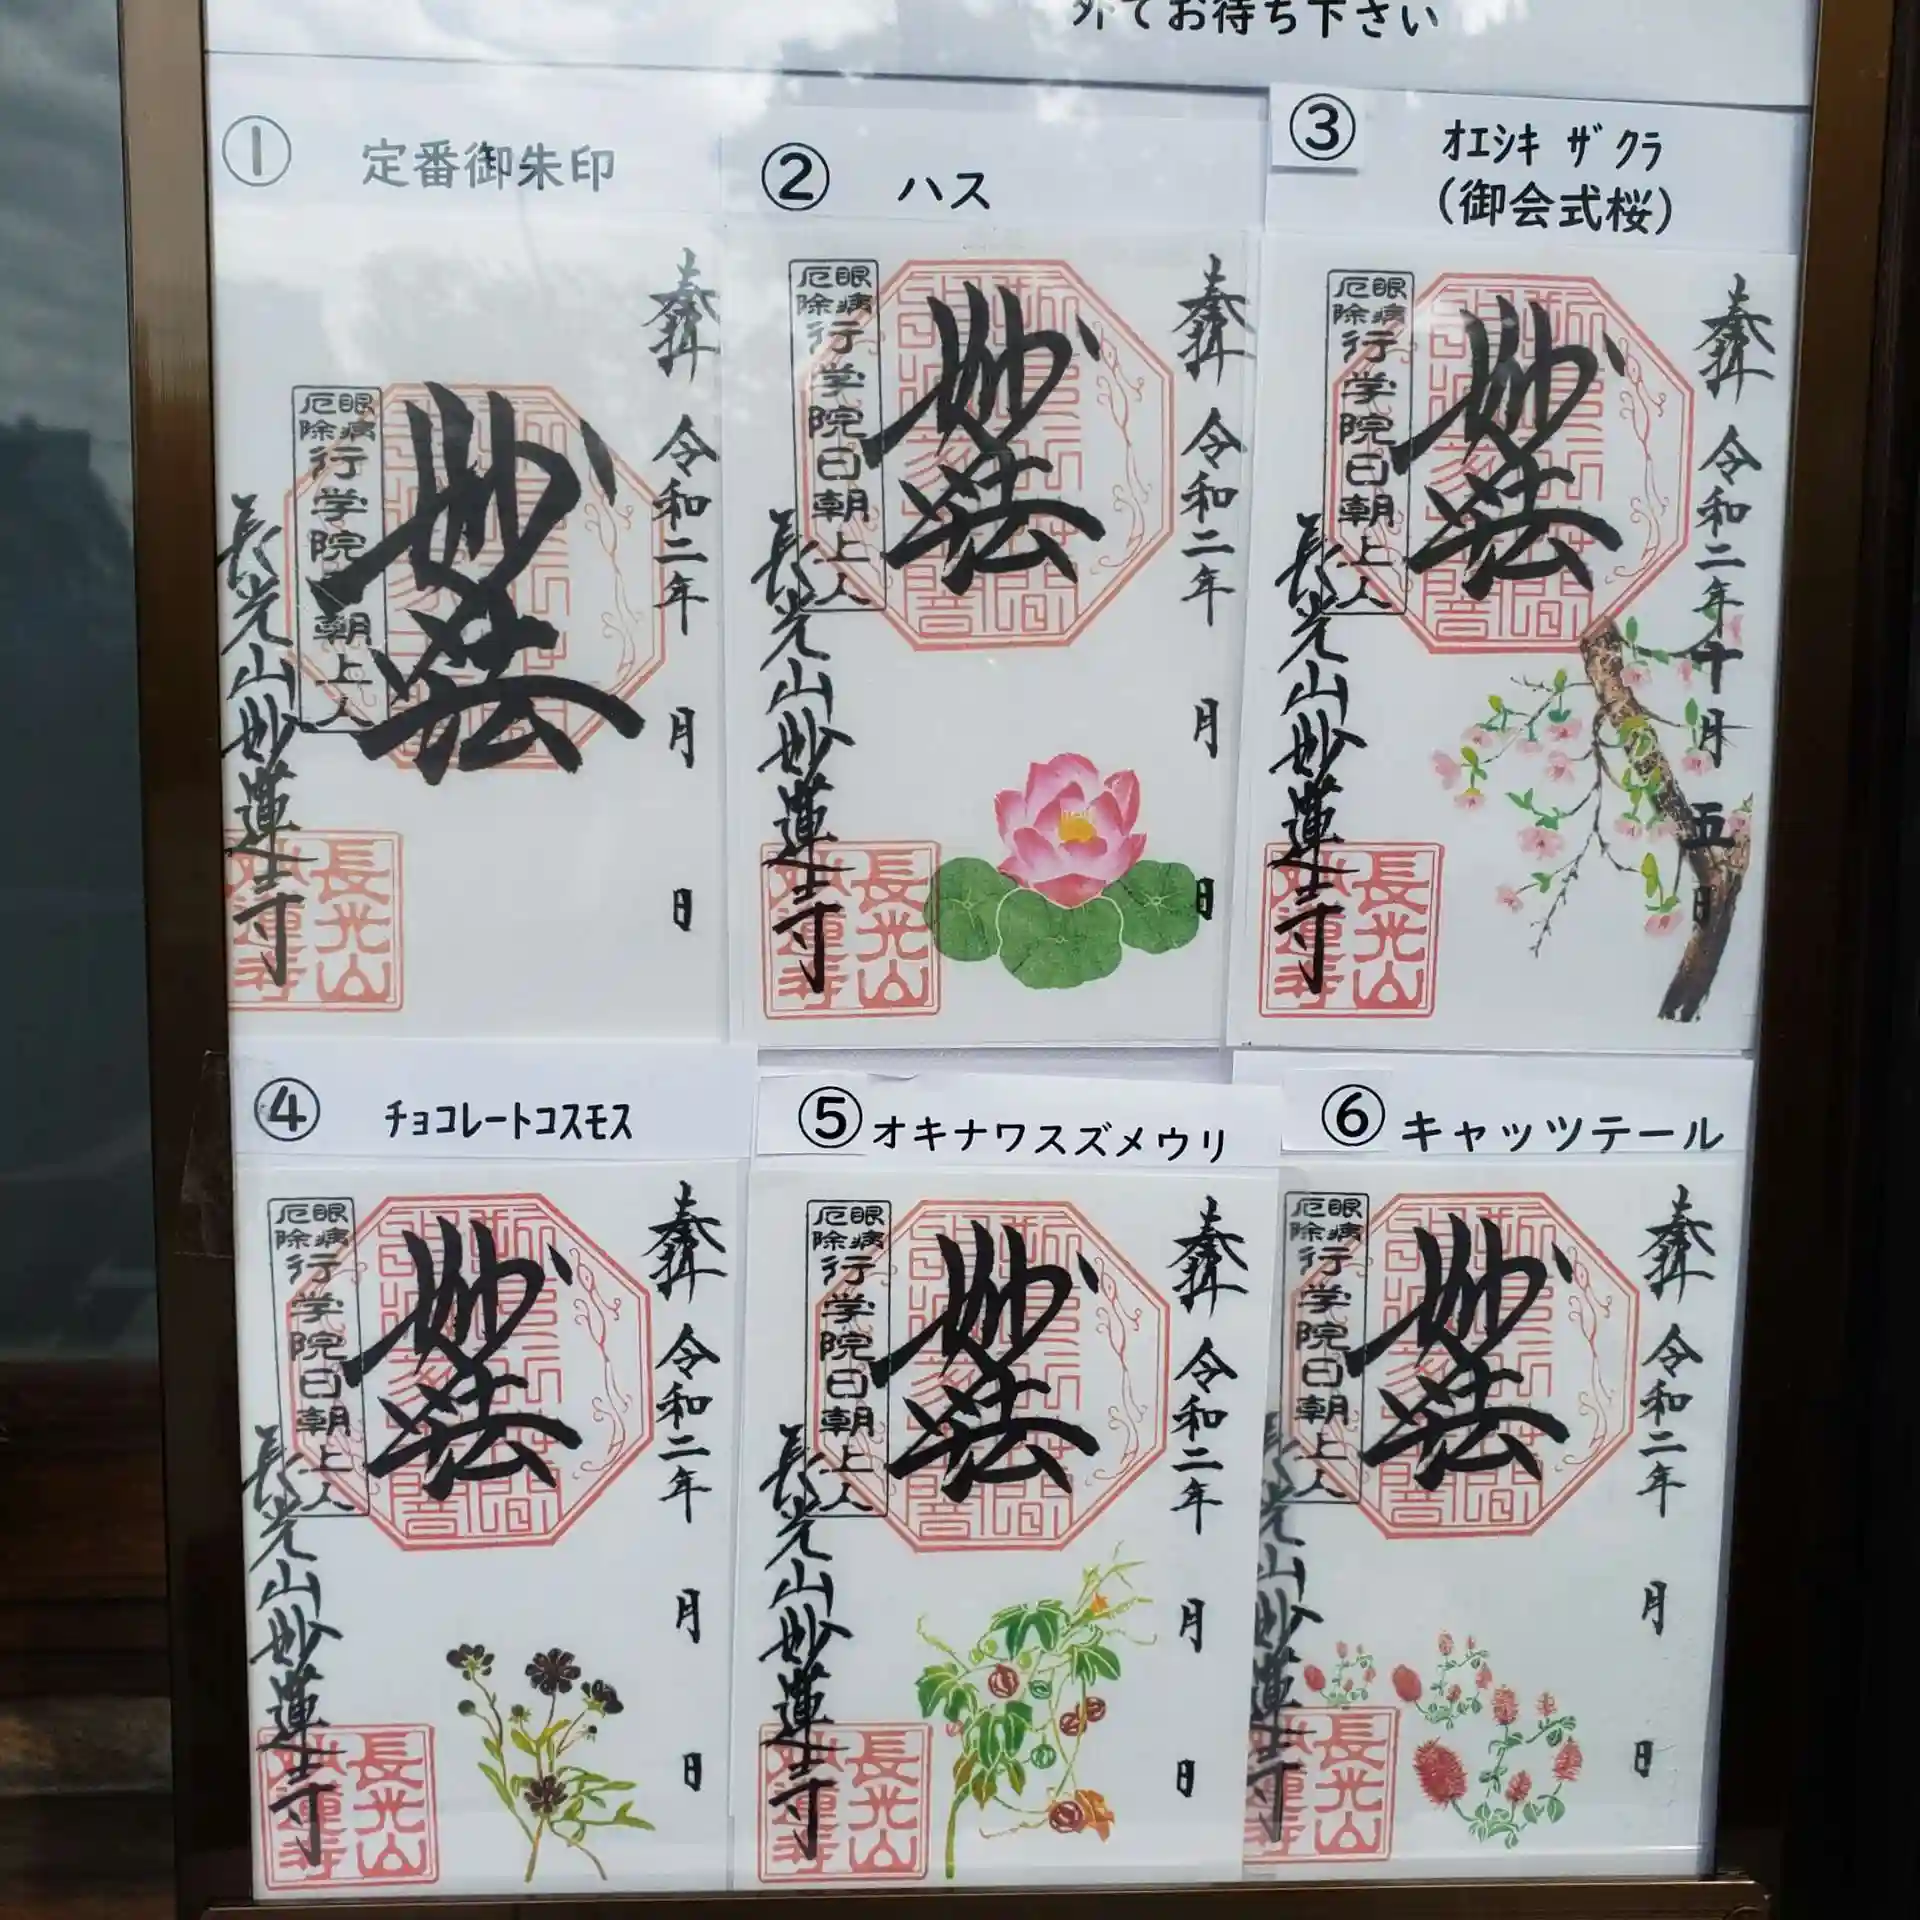 外でお待ち下さい
① 定番御朱印
奉拝
令和二年 月 日
妙法
眼病
厄除
行学院日朝上人
長光山妙蓮寺
長光山
妙蓮寺
② ハス
奉拝
令和二年 月 日
妙法
眼病
厄除
行学院日朝上人
長光山妙蓮寺
長光山
妙蓮寺
③ オエシキ ザクラ
(御会式桜)
奉拝
令和二年十月五日
妙法
眼病
厄除
行学院日朝上人
長光山妙蓮寺
長光山
妙蓮寺
④ チョコレートコスモス
奉拝
令和二年 月 日
妙法
眼病
厄除
行学院日朝上人
長光山妙蓮寺
長光山
妙蓮寺
⑤ オキナワスズメウリ
奉拝
令和二年 月 日
妙法
眼病
厄除
行学院日朝上人
長光山妙蓮寺
長光山
妙蓮寺
⑥ キャッツテール
奉拝
令和二年 月 日
妙法
眼病
厄除
行学院日朝上人
長光山妙蓮寺
長光山
妙蓮寺